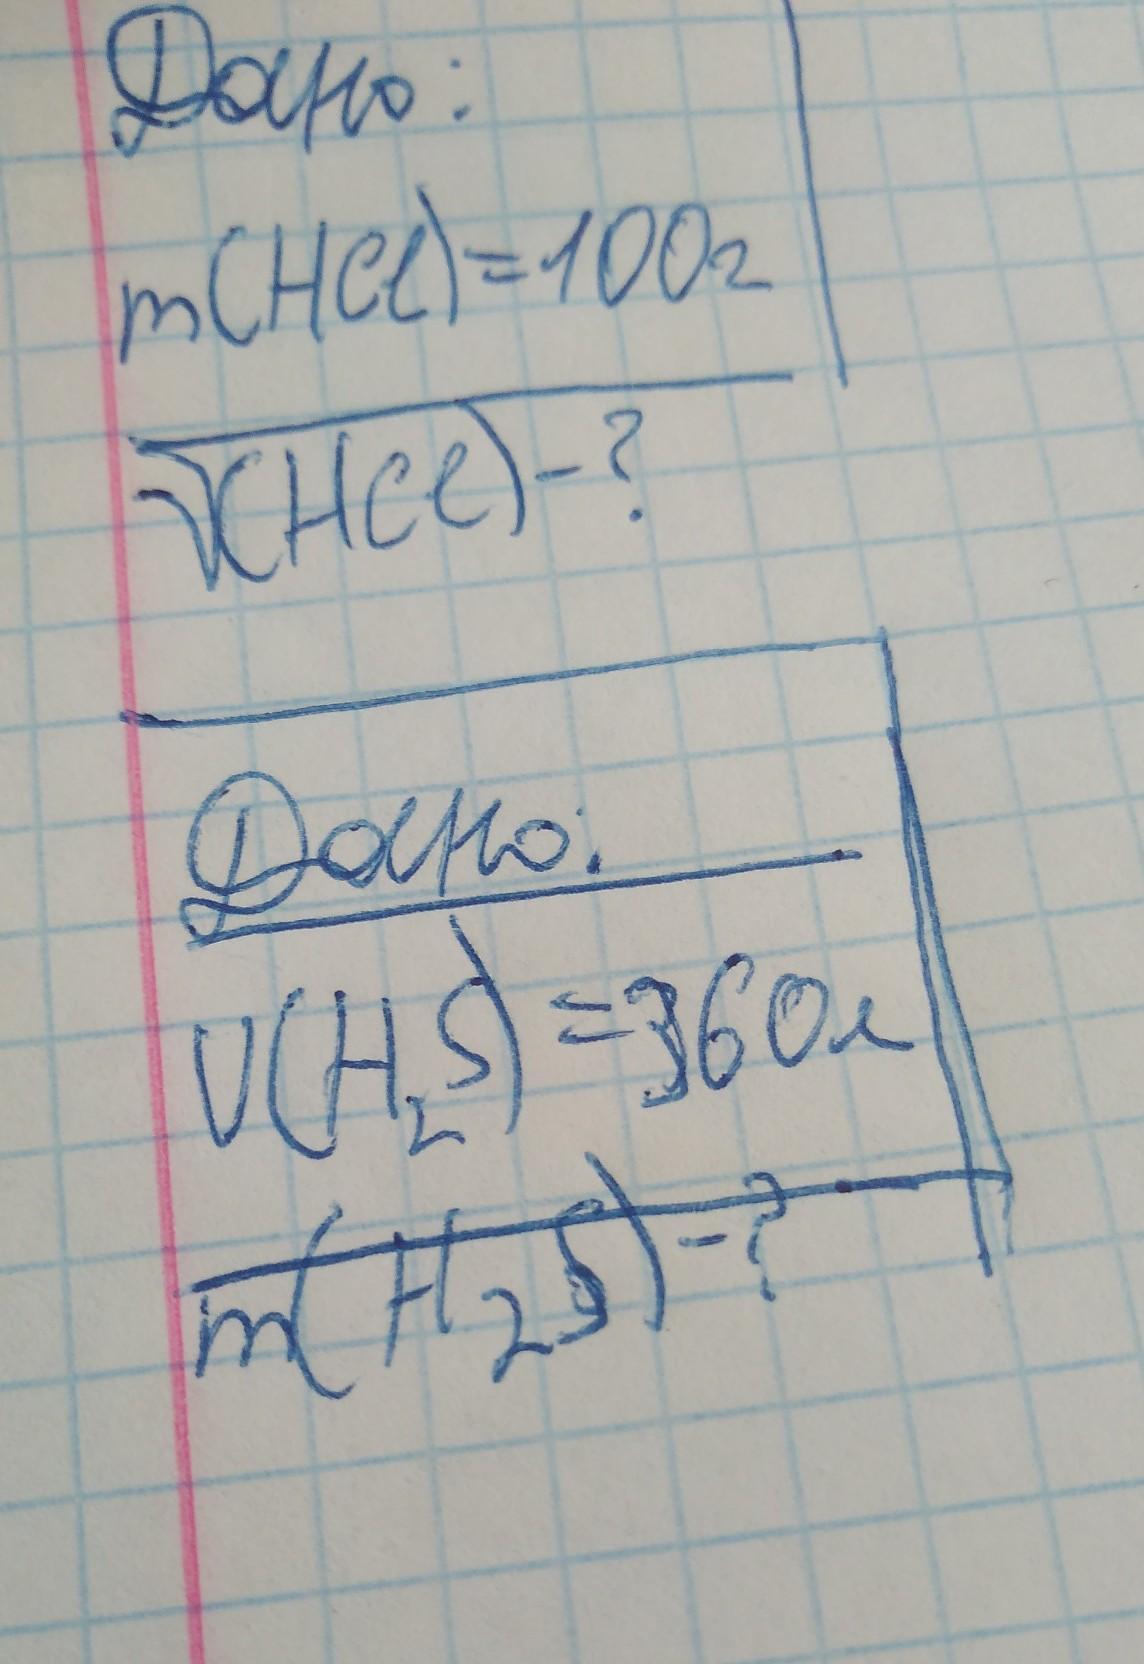 Дано:
m(HCl)=100г
V(HCl)-?
Дано:
V(H₂S)=360л
m(H₂S)-?